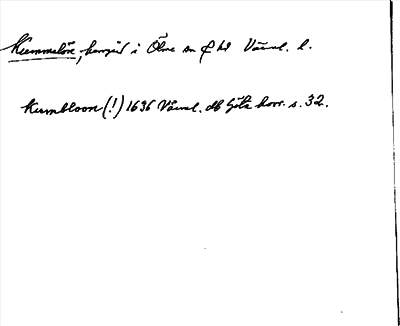 Kummelön, herrgård i Ölme sn o hd Värml. l.
Kumbloon (!) 1636 Värml. db Göta hovr. s. 32.